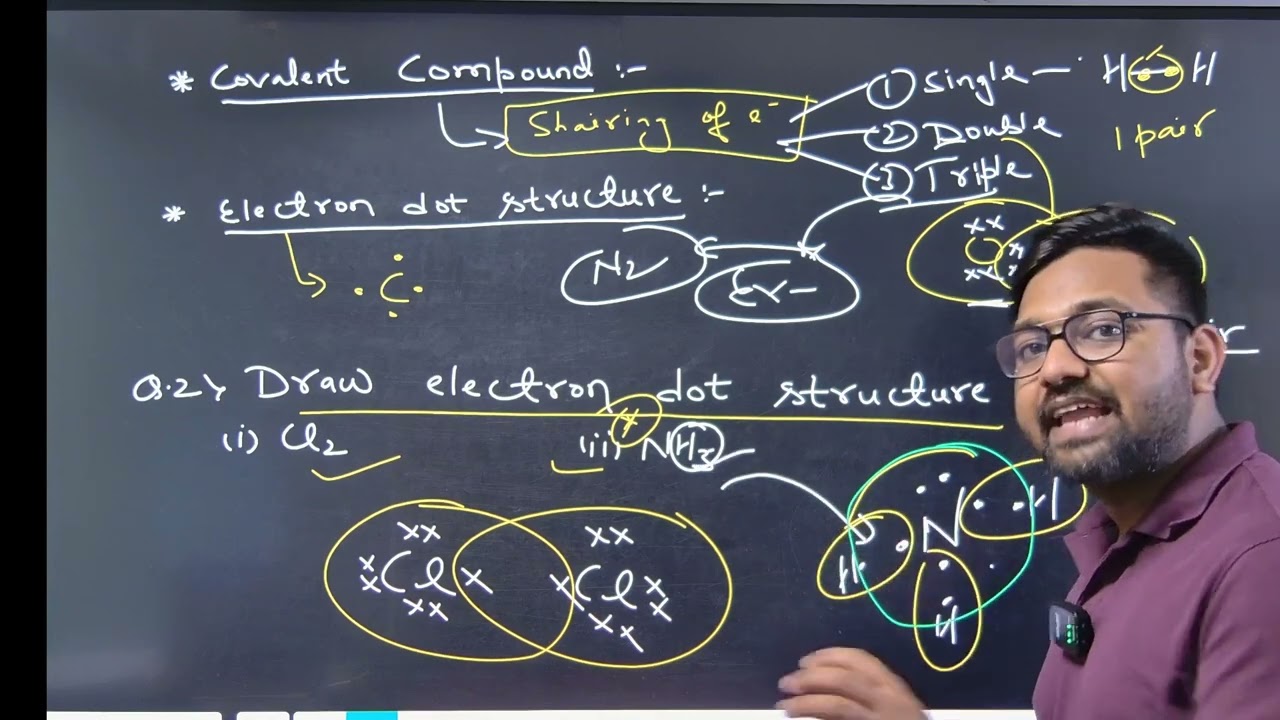 * Covalent Compound :-
Shairing of e-
① Single — H H
1 pair
② Double
③ Triple
* Electron dot structure :-
C
N2
Ex-
Q.2> Draw electron dot structure
(i) Cl2
(ii) NH3
xx xx
x x Cl x x Cl x x
xx x x
N H
H
H